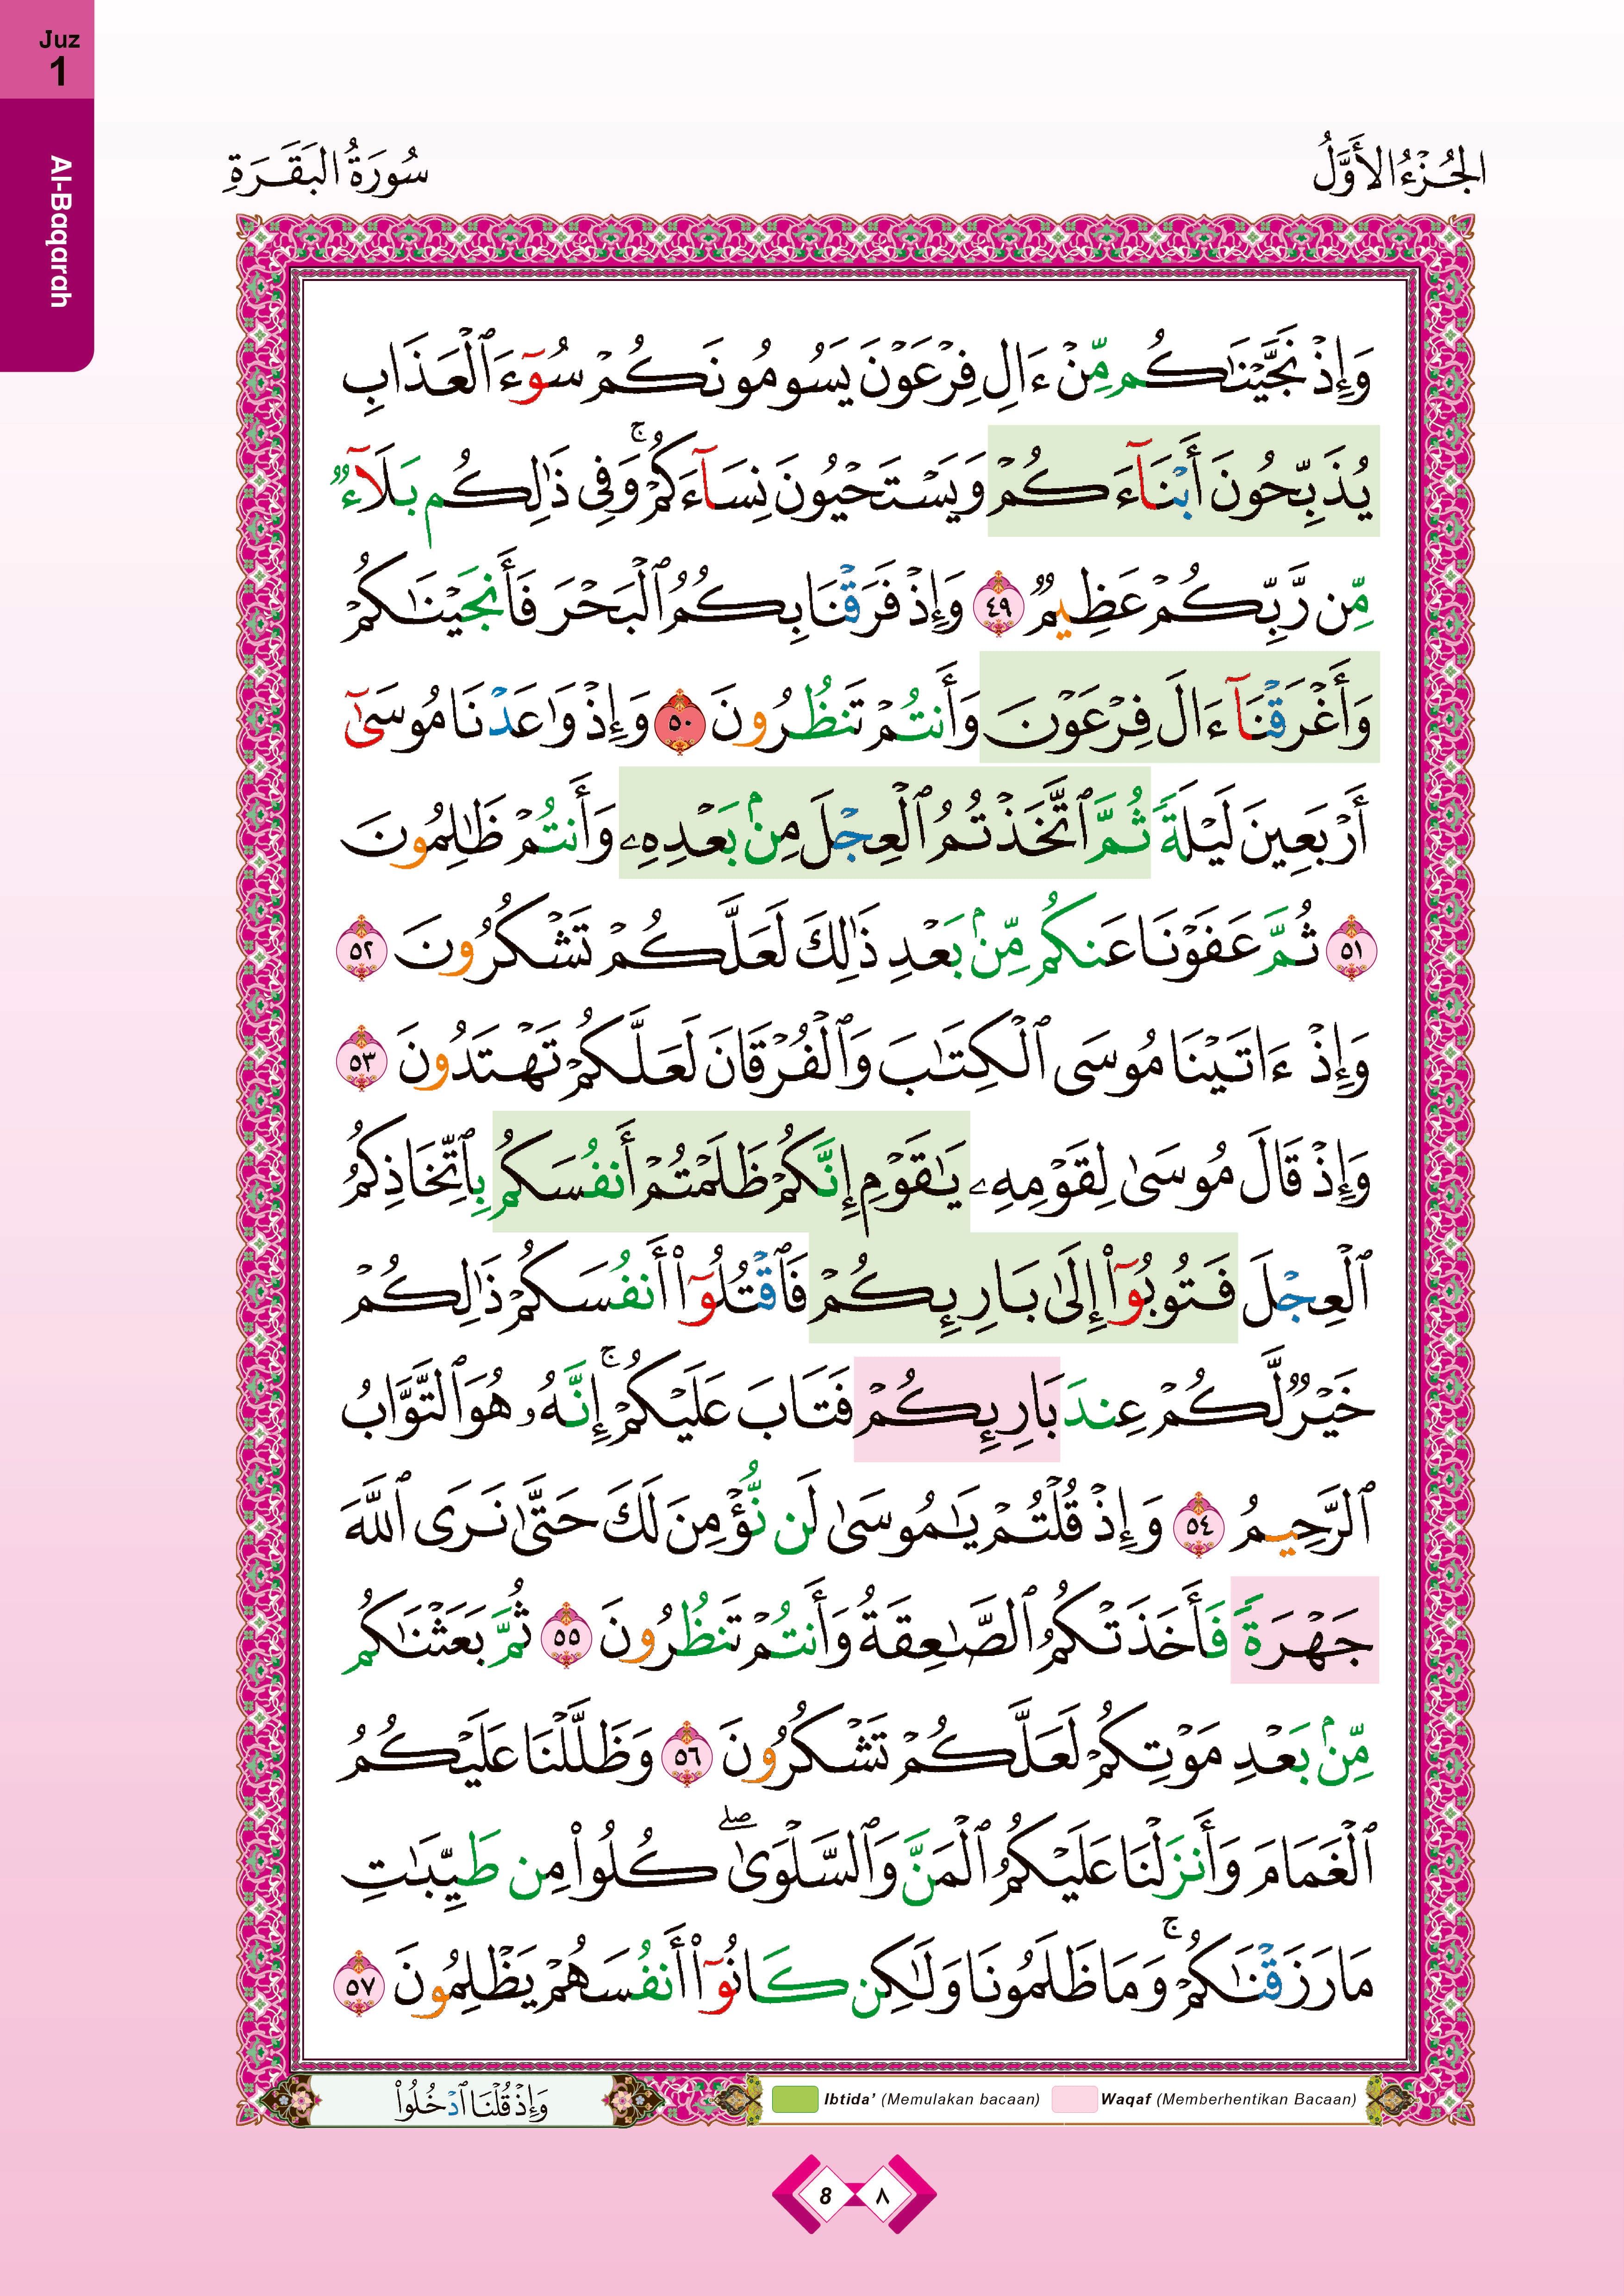 Juz
1
Al-Baqarah
الجُزْءُ الأَوَّلُ
سُورَةُ البَقَرَةِ
وَإِذْ نَجَّيْنَٰكُم مِّنْ ءَالِ فِرْعَوْنَ يَسُومُونَكُمْ سُوٓءَ ٱلْعَذَابِ
يُذَبِّحُونَ أَبْنَآءَكُمْ وَيَسْتَحْيُونَ نِسَآءَكُمْ ۚ وَفِى ذَٰلِكُم بَلَآءٌ
مِّن رَّبِّكُمْ عَظِيمٌ ٤٩ وَإِذْ فَرَقْنَا بِكُمُ ٱلْبَحْرَ فَأَنجَيْنَٰكُمْ
وَأَغْرَقْنَآ ءَالَ فِرْعَوْنَ وَأَنتُمْ تَنظُرُونَ ٥٠ وَإِذْ وَٰعَدْنَا مُوسَىٰٓ
أَرْبَعِينَ لَيْلَةً ثُمَّ ٱتَّخَذْتُمُ ٱلْعِجْلَ مِنۢ بَعْدِهِۦ وَأَنتُمْ ظَٰلِمُونَ
٥١ ثُمَّ عَفَوْنَا عَنكُم مِّنۢ بَعْدِ ذَٰلِكَ لَعَلَّكُمْ تَشْكُرُونَ ٥٢
وَإِذْ ءَاتَيْنَا مُوسَى ٱلْكِتَٰبَ وَٱلْفُرْقَانَ لَعَلَّكُمْ تَهْتَدُونَ ٥٣
وَإِذْ قَالَ مُوسَىٰ لِقَوْمِهِۦ يَٰقَوْمِ إِنَّكُمْ ظَلَمْتُمْ أَنفُسَكُم بِٱتِّخَاذِكُمُ
ٱلْعِجْلَ فَتُوبُوٓا۟ إِلَىٰ بَارِئِكُمْ فَٱقْتُلُوٓا۟ أَنفُسَكُمْ ذَٰلِكُمْ
خَيْرٌ لَّكُمْ عِندَ بَارِئِكُمْ فَتَابَ عَلَيْكُمْ ۚ إِنَّهُۥ هُوَ ٱلتَّوَّابُ
ٱلرَّحِيمُ ٥٤ وَإِذْ قُلْتُمْ يَٰمُوسَىٰ لَن نُّؤْمِنَ لَكَ حَتَّىٰ نَرَى ٱللَّهَ
جَهْرَةً فَأَخَذَتْكُمُ ٱلصَّٰعِقَةُ وَأَنتُمْ تَنظُرُونَ ٥٥ ثُمَّ بَعَثْنَٰكُم
مِّنۢ بَعْدِ مَوْتِكُمْ لَعَلَّكُمْ تَشْكُرُونَ ٥٦ وَظَلَّلْنَا عَلَيْكُمُ
ٱلْغَمَامَ وَأَنزَلْنَا عَلَيْكُمُ ٱلْمَنَّ وَٱلسَّلْوَىٰ ۖ كُلُوا۟ مِن طَيِّبَٰتِ
مَا رَزَقْنَٰكُمْ ۚ وَمَا ظَلَمُونَا وَلَٰكِن كَانُوٓا۟ أَنفُسَهُمْ يَظْلِمُونَ ٥٧
وَإِذْ قُلْنَا ٱدْخُلُوا۟
Ibtida' (Memulakan bacaan) Waqaf (Memberhentikan Bacaan)
8 ٨